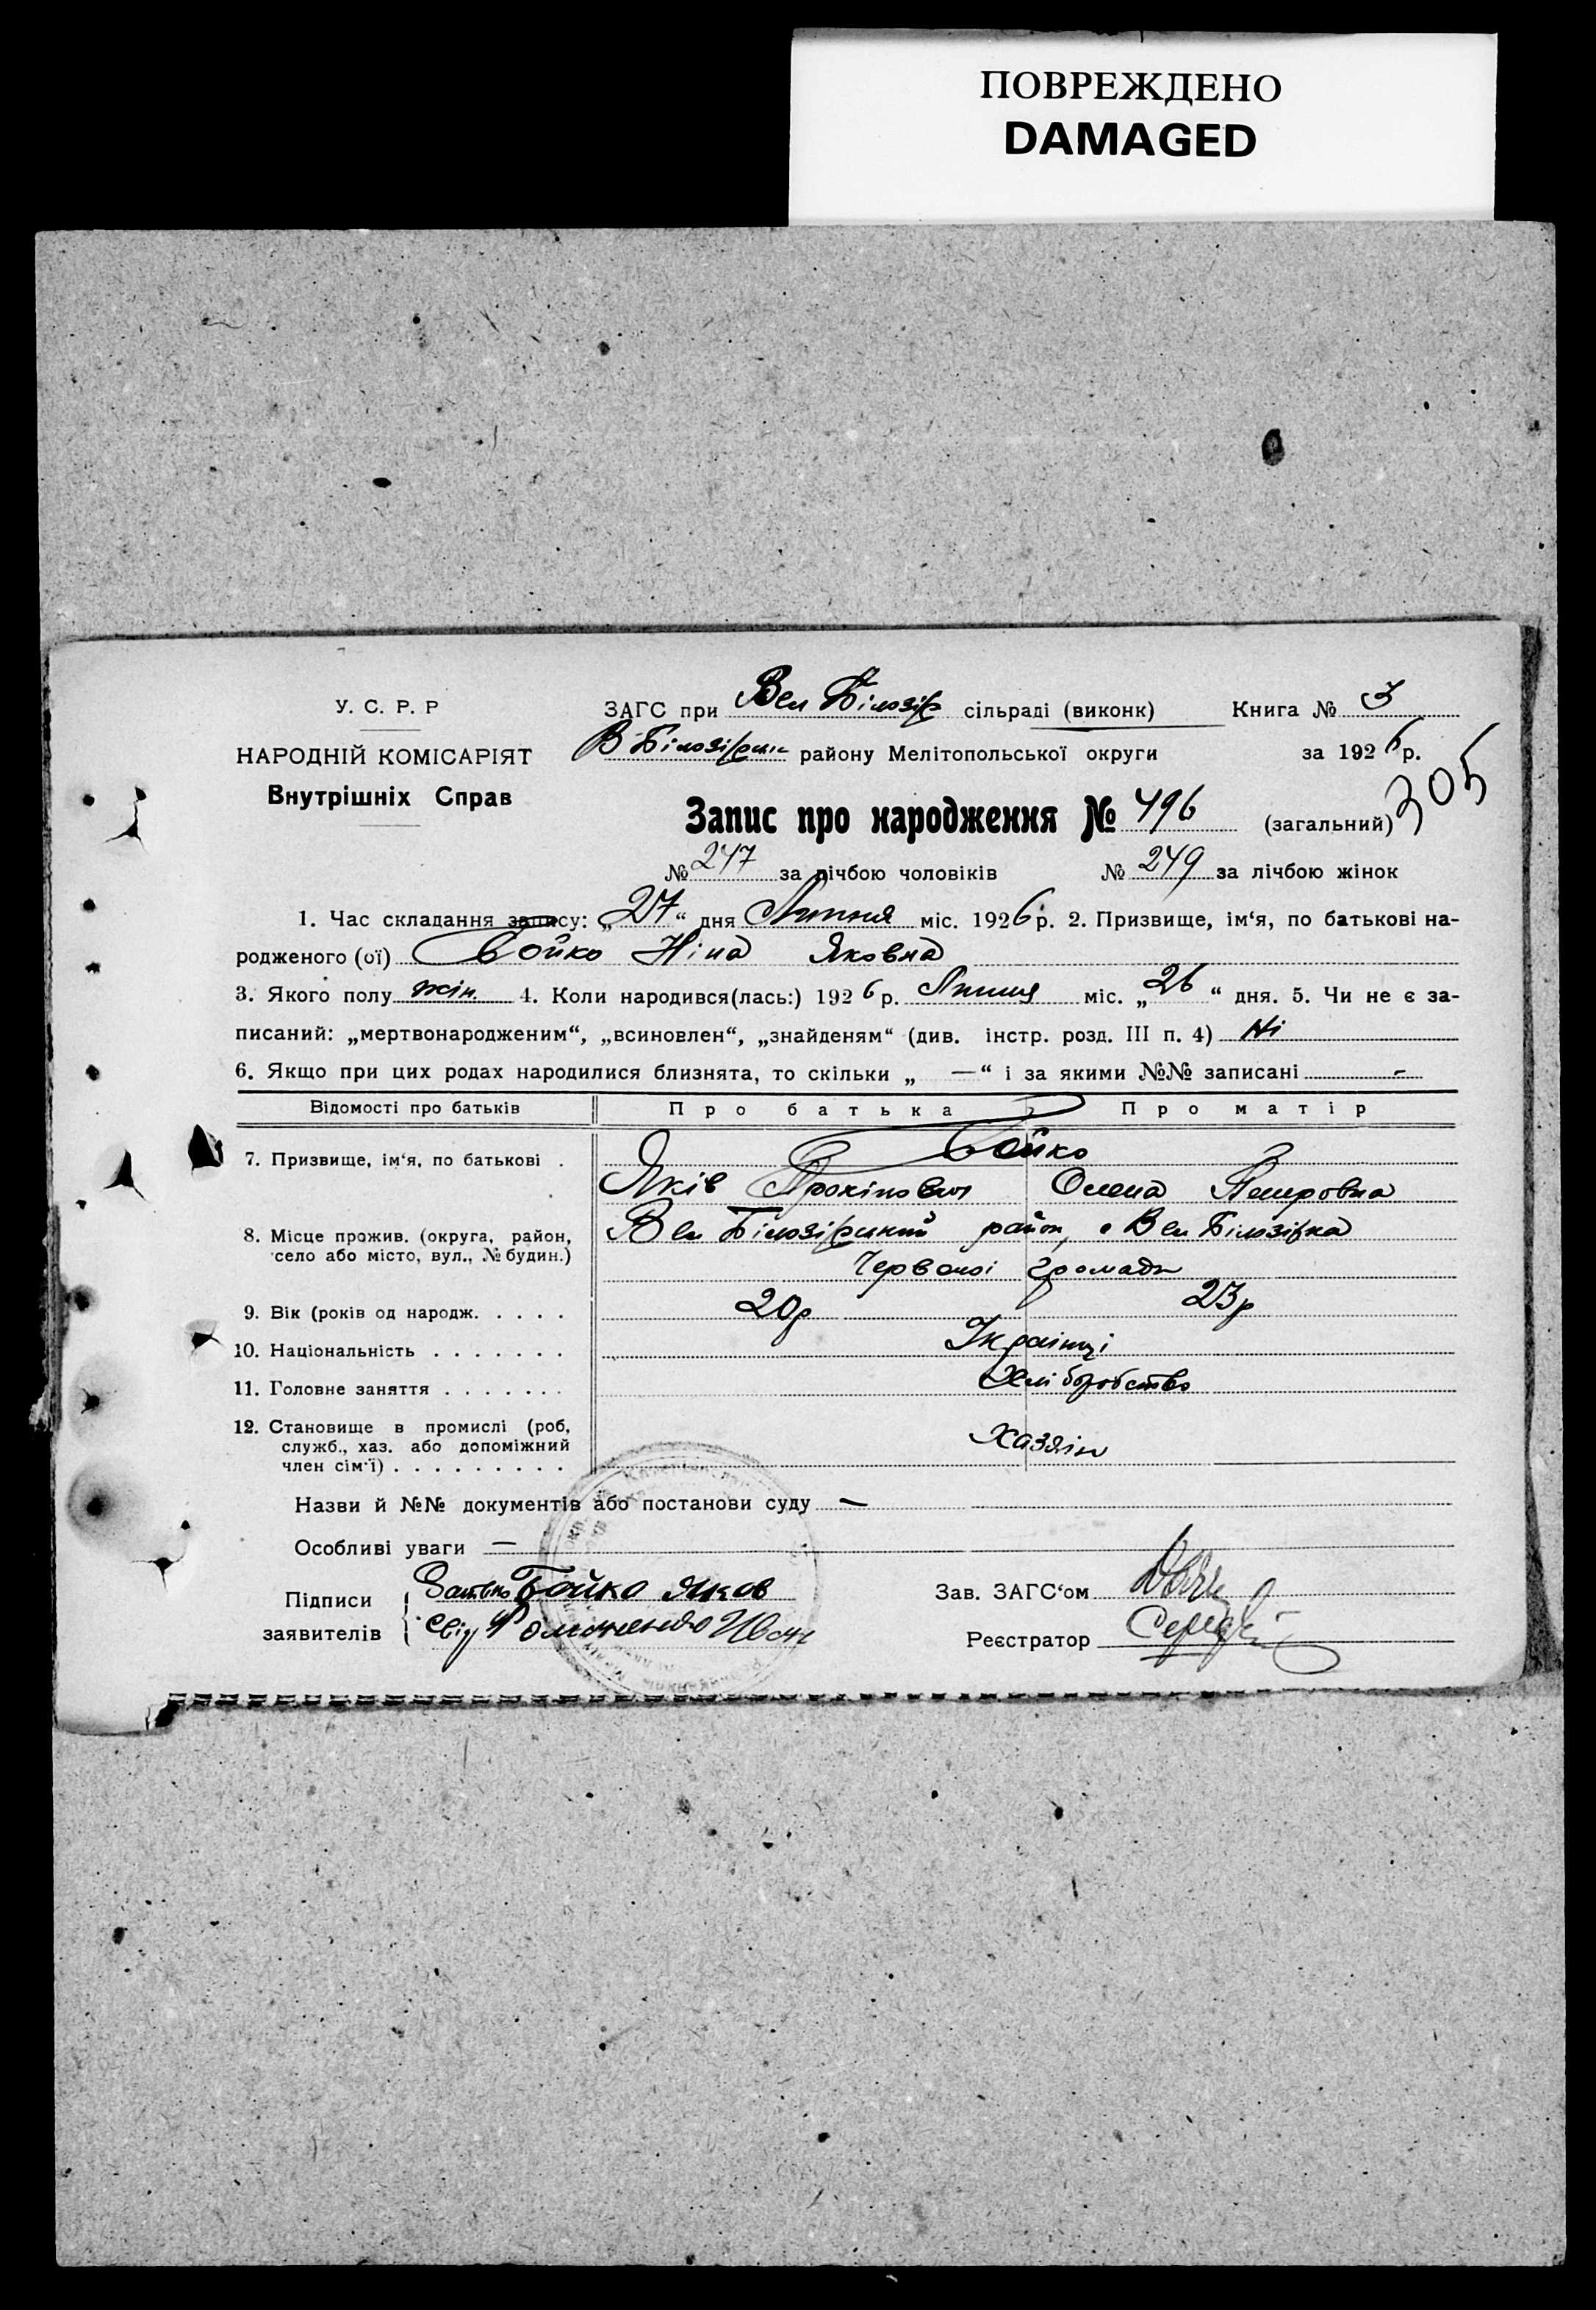 ПОВРЕЖДЕНО
DAMAGED
У. С. Р. Р
НАРОДНІЙ КОМІСАРІЯТ
Внутрішніх Справ
ЗАГС при Вел Білозір сільраді (виконк) Книга № 3
В Білозірськ району Мелітопольської округи за 1926 р.
305
Запис про народження № 496 (загальний)
№ 247 за лічбою чоловіків № 249 за лічбою жінок
1. Час складання запису: „27“ дня Липня міс. 1926 р. 2. Призвище, ім‘я, по батькові на-
родженого (ої) Бойко Ніна Яковна
3. Якого полу жін. 4. Коли народився(лась:) 1926 р. Липня міс. „26“ дня. 5. Чи не є за-
писаний: „мертвонародженим“, „всиновлен“, „знайденям“ (див. інстр. розд. III п. 4) Ні
6. Якщо при цих родах народилися близнята, то скільки „ — “ і за якими №№ записані -
Відомості про батьків Про батька Про матір
7. Призвище, ім‘я, по батькові . Бойко
Яків Прокіпович Олена Петровна
8. Місце прожив. (округа, район, село або місто, вул., № будин.) Вел Білозірський район, с Вел Білозірка
Червоної громади
9. Вік (років од народж. . . . . 20р 23р
10. Національність . . . . . . . Українці
11. Головне заняття . . . . . . . Хліборобство
12. Становище в промислі (роб,
служб., хаз. або допоміжний Хазяїн
член сім‘ї) . . . . . . . . .
Назви й №№ документів або постанови суду —
Особливі уваги —
Підписи Батько Бойко Яков Зав. ЗАГС‘ом
заявителів Свід Реєстратор